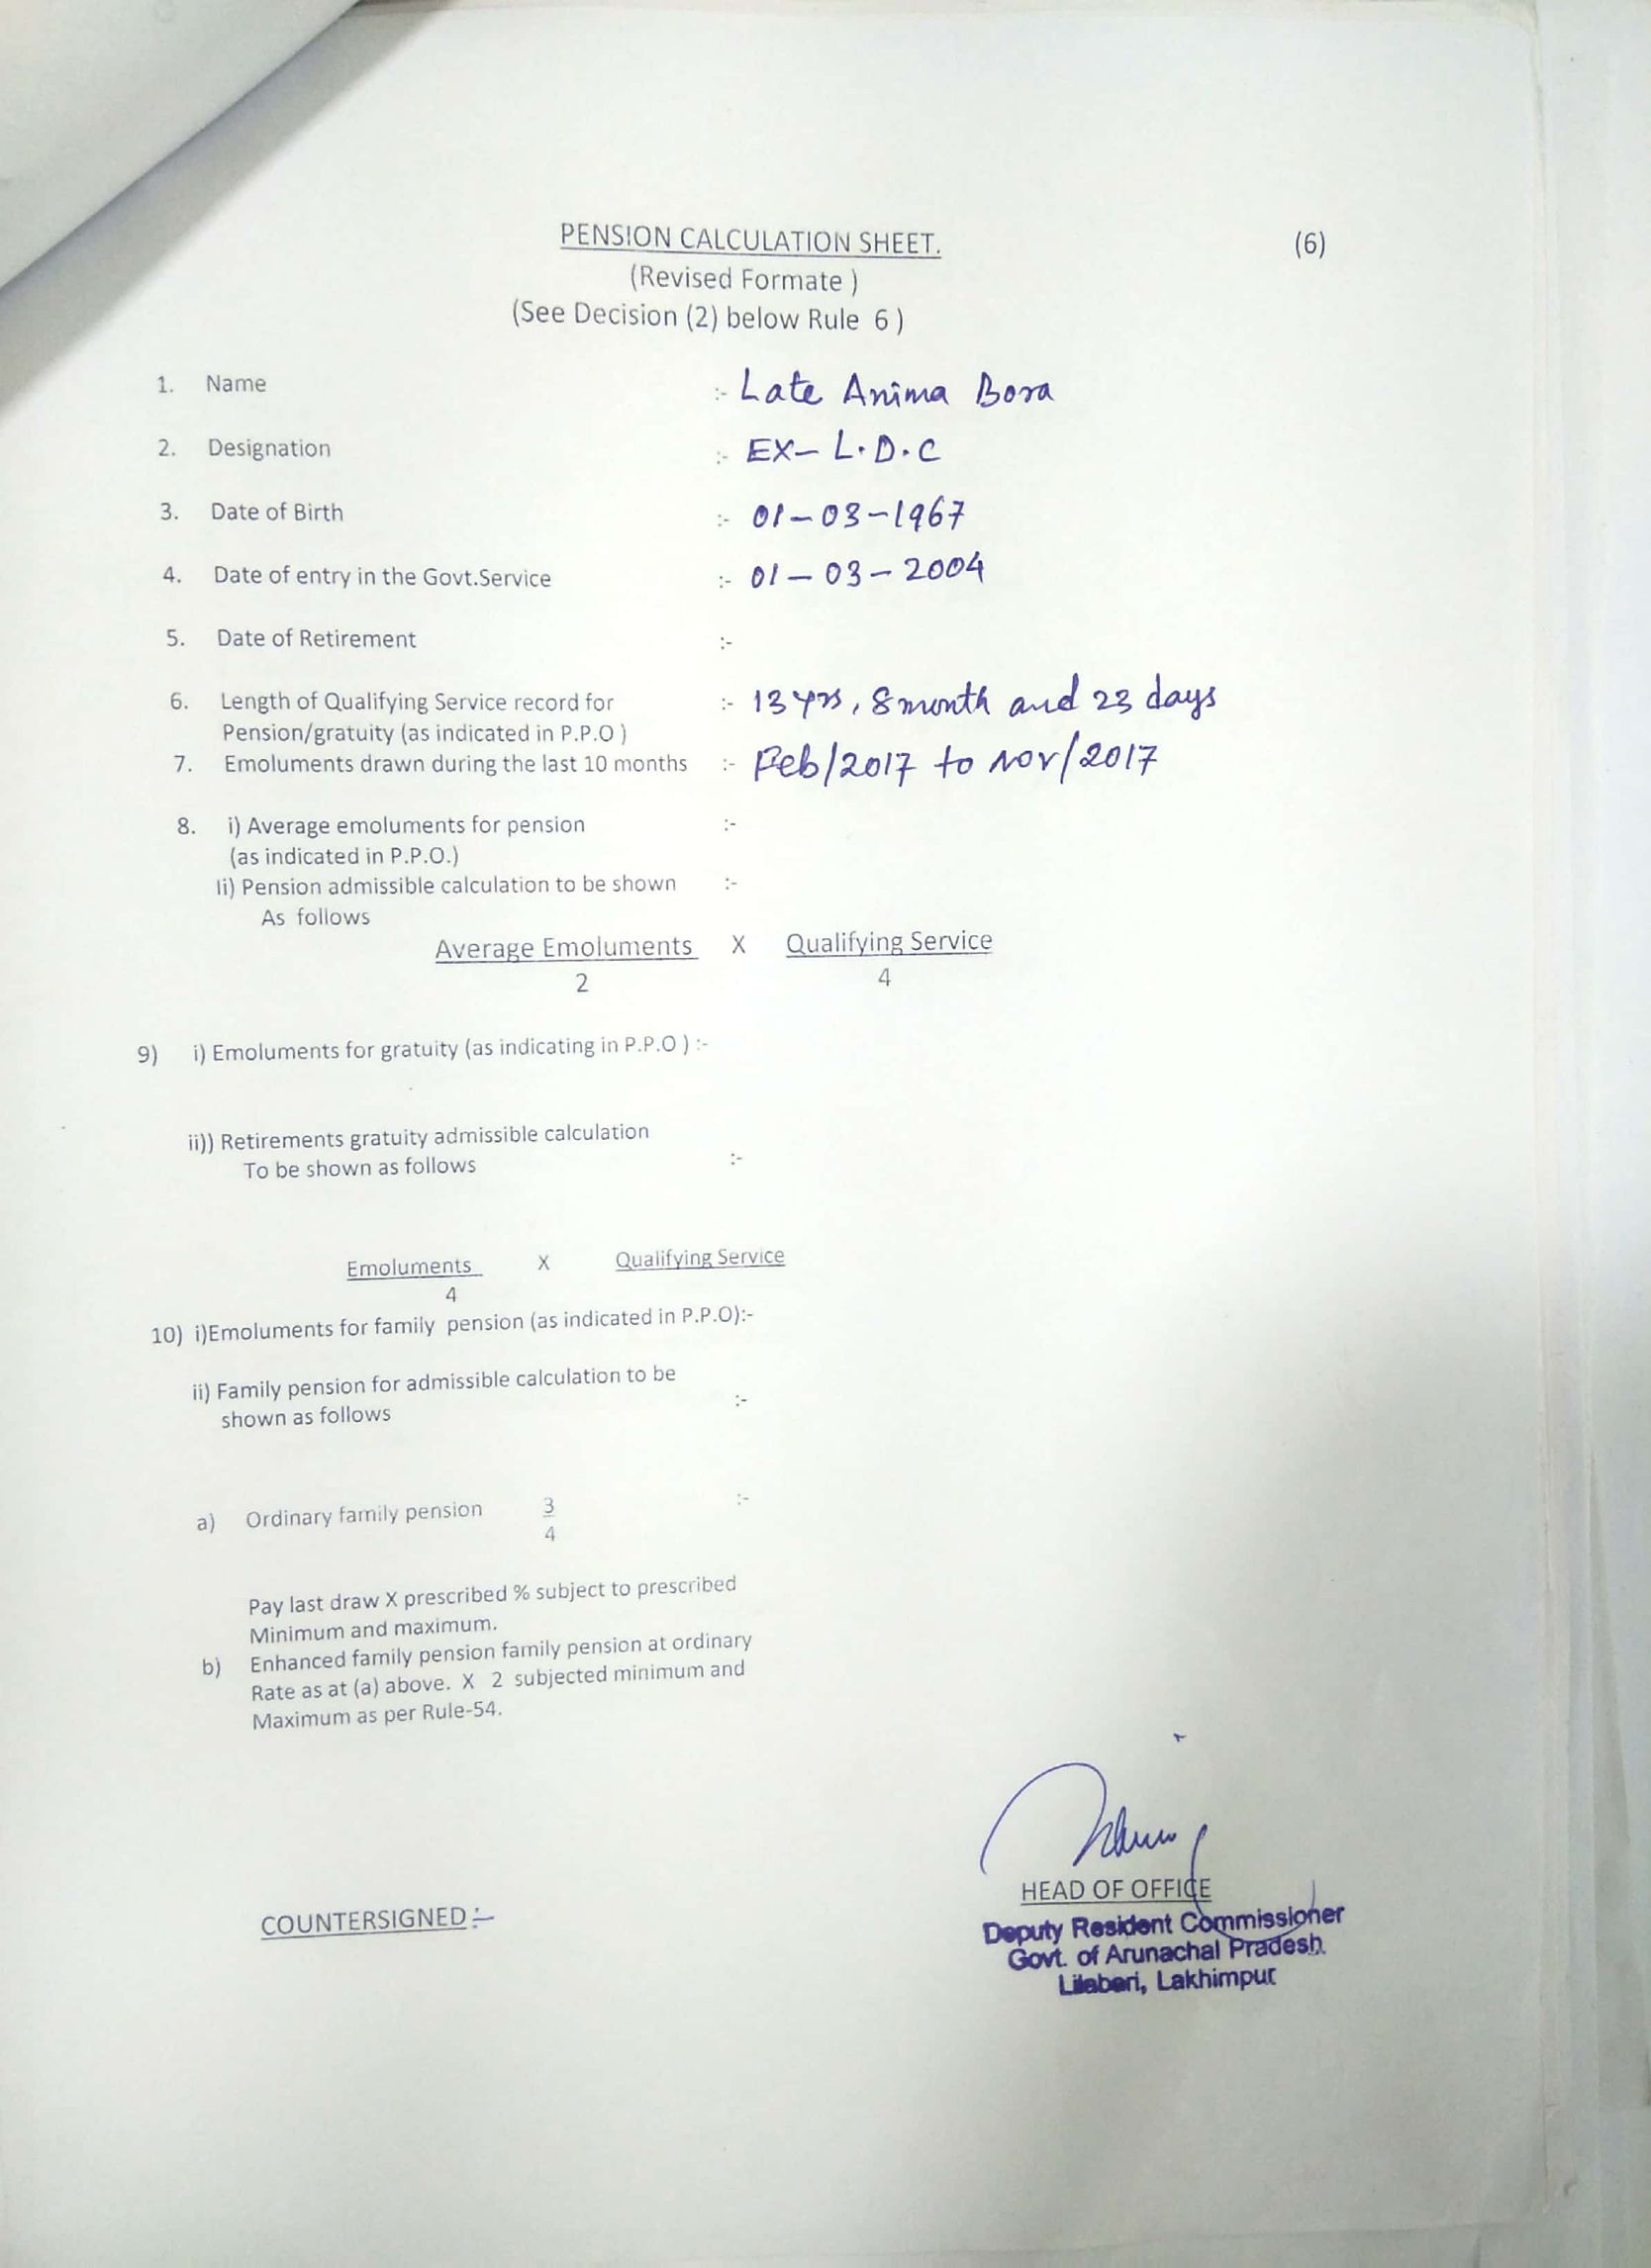 PENSION CALCULATION SHEET. (6)
(Revised Formate )
(See Decision (2) below Rule 6 )
1. Name :- Late Anima Bora
2. Designation :- EX- L.D.C
3. Date of Birth :- 01-03-1967
4. Date of entry in the Govt.Service :- 01-03-2004
5. Date of Retirement :-
6. Length of Qualifying Service record for :- 13 yrs, 8 month and 23 days
Pension/gratuity (as indicated in P.P.O )
7. Emoluments drawn during the last 10 months :- Feb/2017 to Nov/2017
8. i) Average emoluments for pension :-
(as indicated in P.P.O.)
Ii) Pension admissible calculation to be shown :-
As follows
Average Emoluments X Qualifying Service
2 4
9) i) Emoluments for gratuity (as indicating in P.P.O ) :-
ii)) Retirements gratuity admissible calculation
To be shown as follows :-
Emoluments X Qualifying Service
4
10) i)Emoluments for family pension (as indicated in P.P.O):-
ii) Family pension for admissible calculation to be
shown as follows :-
a) Ordinary family pension 3 :-
4
Pay last draw X prescribed % subject to prescribed
Minimum and maximum.
b) Enhanced family pension family pension at ordinary
Rate as at (a) above. X 2 subjected minimum and
Maximum as per Rule-54.
HEAD OF OFFICE
COUNTERSIGNED :-
Deputy Resident Commissioner
Govt. of Arunachal Pradesh
Lilabari, Lakhimpur